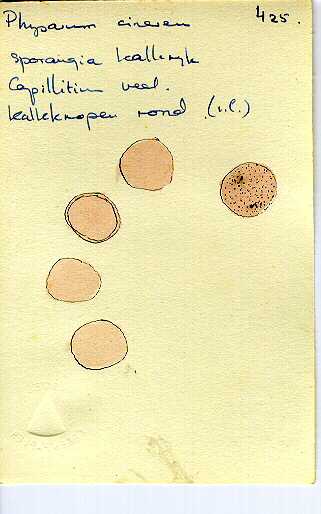 Physarum cinereum 425.
sporangia kalkryk
Capillitium veel.
kalkknopen rond (v.l.)